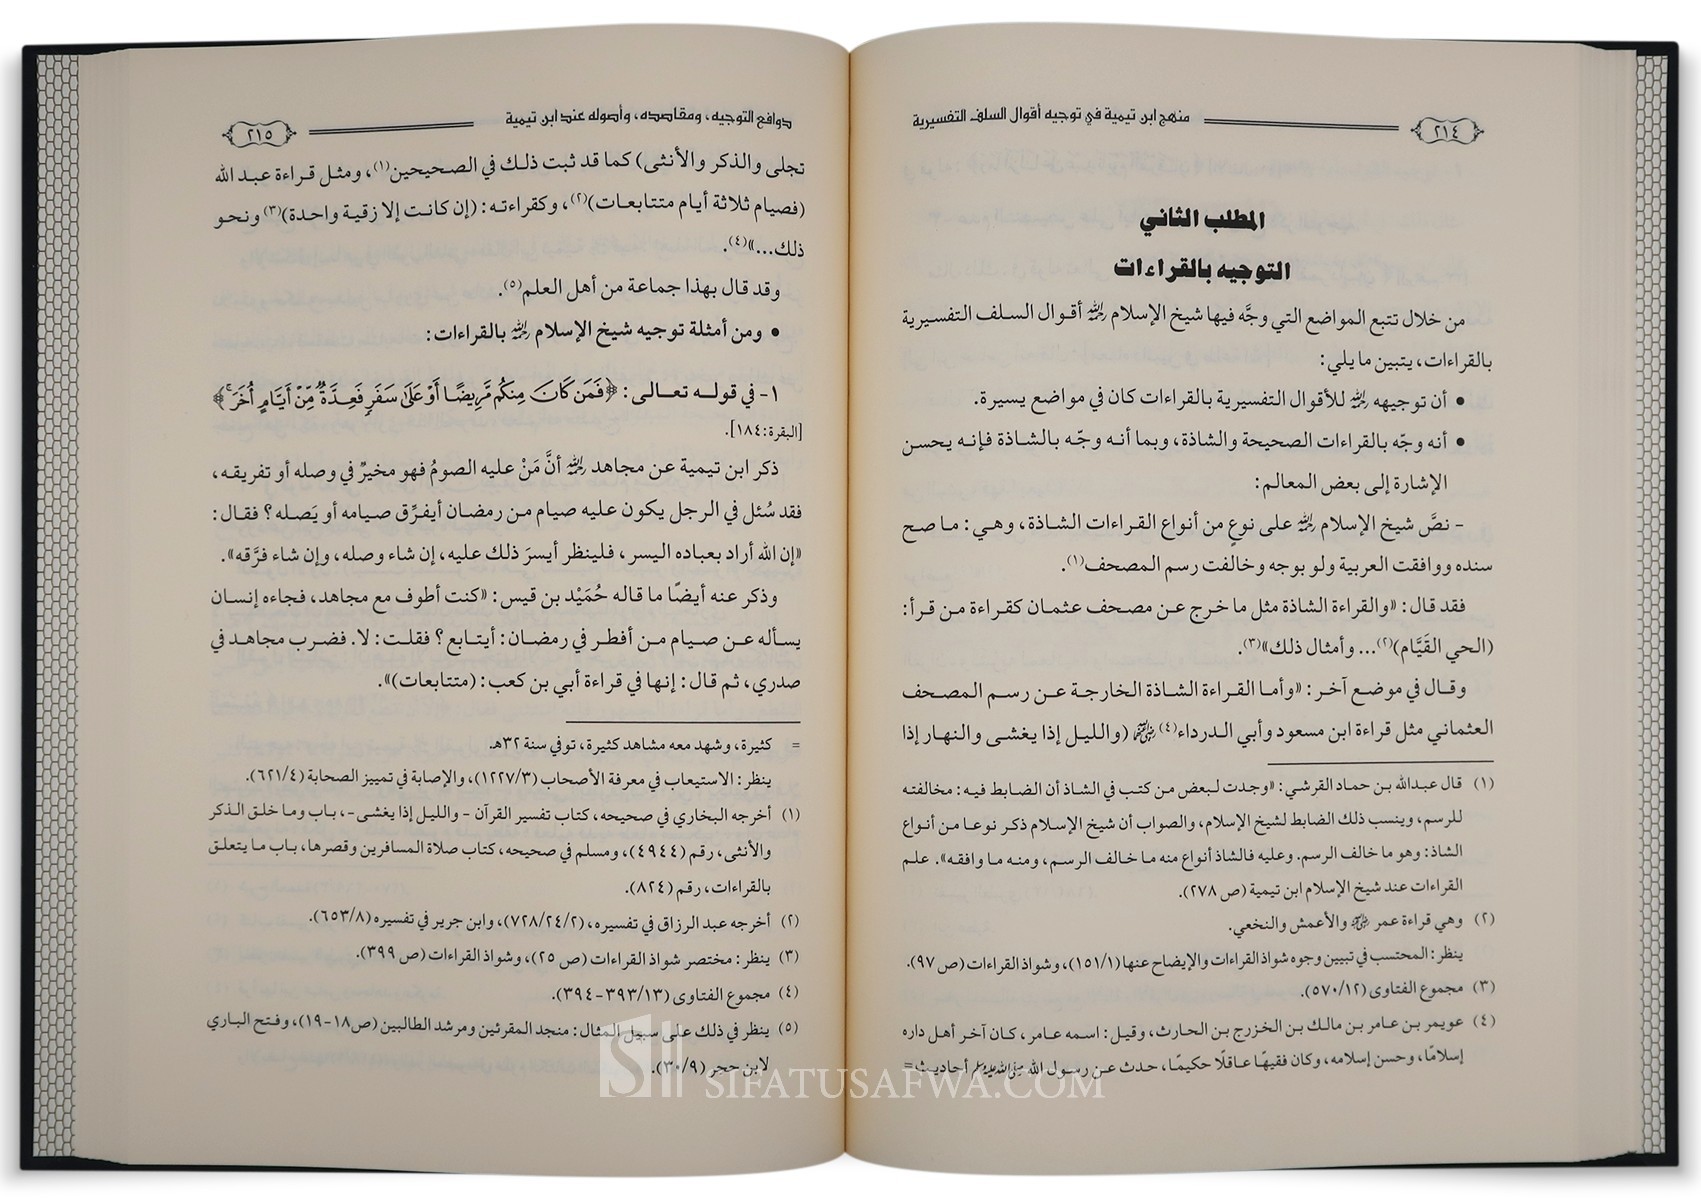 منهج ابن تيمية في توجيه أقوال السلف التفسيرية
٢١٤
المطلب الثاني
التوجيه بالقراءات
من خلال تتبع المواضع التي وجَّه فيها شيخ الإسلام رحمه الله أقوال السلف التفسيرية
بالقراءات، يتبين ما يلي:
• أن توجيهه رحمه الله للأقوال التفسيرية بالقراءات كان في مواضع يسيرة.
• أنه وجّه بالقراءات الصحيحة والشاذة، وبما أنه وجّه بالشاذة فإنه يحسن
الإشارة إلى بعض المعالم:
- نصَّ شيخ الإسلام رحمه الله على نوعٍ من أنواع القراءات الشاذة، وهي: ما صح
سنده ووافقت العربية ولو بوجه وخالفت رسم المصحف(١).
فقد قال: «والقراءة الشاذة مثل ما خرج عن مصحف عثمان كقراءة من قرأ:
(الحي القَيَّام)(٢)... وأمثال ذلك»(٣).
وقال في موضع آخر: «وأما القراءة الشاذة الخارجة عن رسم المصحف
العثماني مثل قراءة ابن مسعود وأبي الدرداء(٤) رضي الله عنهما (والليل إذا يغشى والنهار إذا
(١) قال عبدالله بن حماد القرشي: «وجدت لبعض من كتب في الشاذ أن الضابط فيه: مخالفته
للرسم، وينسب ذلك الضابط لشيخ الإسلام، والصواب أن شيخ الإسلام ذكر نوعا من أنواع
الشاذ: وهو ما خالف الرسم. وعليه فالشاذ أنواع منه ما خالف الرسم، ومنه ما وافقه». علم
القراءات عند شيخ الإسلام ابن تيمية (ص ٢٧٨).
(٢) وهي قراءة عمر رضي الله عنه والأعمش والنخعي.
ينظر: المحتسب في تبيين وجوه شواذ القراءات والإيضاح عنها (١٥١/١)، وشواذ القراءات (ص ٩٧).
(٣) مجموع الفتاوى (٥٧٠/١٢).
(٤) عويمر بن عامر بن مالك بن الخزرج بن الحارث، وقيل: اسمه عامر، كان آخر أهل داره
إسلامًا، وحسن إسلامه، وكان فقيهًا عاقلًا حكيمًا، حدث عن رسول الله صلى الله عليه وسلم أحاديث=
دوافع التوجيه، ومقاصده، وأصوله عند ابن تيمية
٢١٥
تجلى والذكر والأنثى) كما قد ثبت ذلك في الصحيحين(١)، ومثل قراءة عبد الله
(فصيام ثلاثة أيام متتابعات)(٢)، وكقراءته: (إن كانت إلا زقية واحدة)(٣) ونحو
ذلك...»(٤).
وقد قال بهذا جماعة من أهل العلم(٥).
• ومن أمثلة توجيه شيخ الإسلام رحمه الله بالقراءات:
١- في قوله تعالى: ﴿فَمَن كَانَ مِنكُم مَّرِيضًا أَوْ عَلَىٰ سَفَرٍ فَعِدَّةٌ مِّنْ أَيَّامٍ أُخَرَ ۚ﴾
[البقرة:١٨٤].
ذكر ابن تيمية عن مجاهد رحمه الله أنَّ مَنْ عليه الصومُ فهو مخيرٌ في وصله أو تفريقه،
فقد سُئل في الرجل يكون عليه صيام من رمضان أيفرِّق صيامه أو يَصله؟ فقال:
«إن الله أراد بعباده اليسر، فلينظر أيسرَ ذلك عليه، إن شاء وصله، وإن شاء فرَّقه».
وذكر عنه أيضًا ما قاله حُمَيْد بن قيس: «كنت أطوف مع مجاهد، فجاءه إنسان
يسأله عن صيام من أفطر في رمضان: أيتابع؟ فقلت: لا. فضرب مجاهد في
صدري، ثم قال: إنها في قراءة أبي بن كعب: (متتابعات)».
= كثيرة، وشهد معه مشاهد كثيرة، توفي سنة ٣٢هـ.
ينظر: الاستيعاب في معرفة الأصحاب (١٢٢٧/٣)، والإصابة في تمييز الصحابة (٦٢١/٤).
(١) أخرجه البخاري في صحيحه، كتاب تفسير القرآن - والليل إذا يغشى-، باب وما خلق الذكر
والأنثى، رقم (٤٩٤٤)، ومسلم في صحيحه، كتاب صلاة المسافرين وقصرها، باب ما يتعلق
بالقراءات، رقم (٨٢٤).
(٢) أخرجه عبد الرزاق في تفسيره، (٧٢٨/٢٤/٢)، وابن جرير في تفسيره (٦٥٣/٨).
(٣) ينظر: مختصر شواذ القراءات (ص ٢٥)، وشواذ القراءات (ص ٣٩٩).
(٤) مجموع الفتاوى (٣٩٣/١٣-٣٩٤).
(٥) ينظر في ذلك على سبيل المثال: منجد المقرئين ومرشد الطالبين (ص١٨-١٩)، وفتح الباري
لابن حجر (٣٠/٩).
SIFATUSAFWA.COM